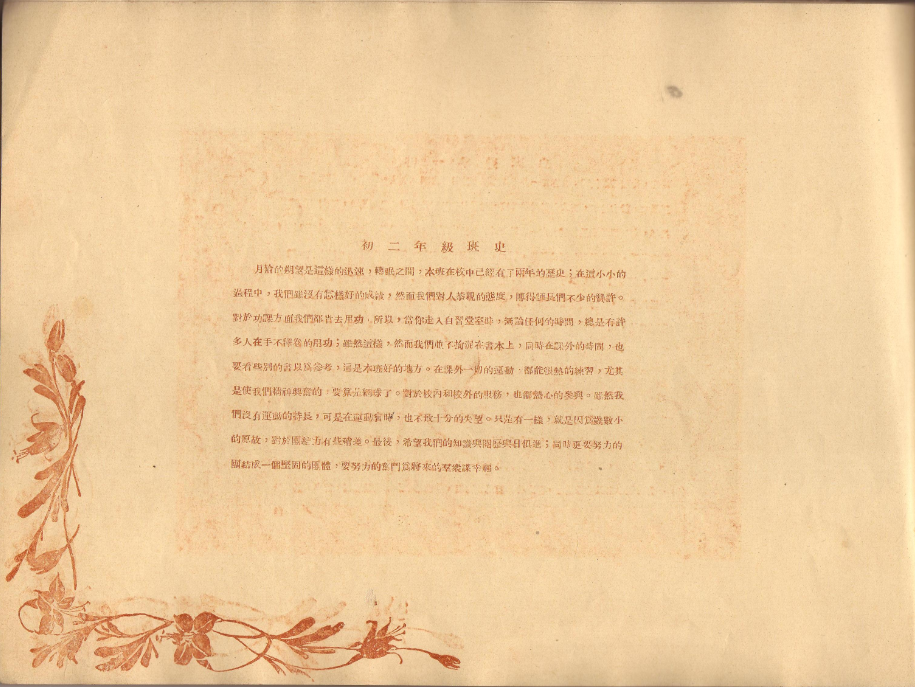 初二年級班史
月前的期望是這樣的迅速，轉眼之間，本班在校中已經有了兩年的歷史；在這小小的
過程中，我們雖沒有怎樣好的成績，然而我們對人恭親的態度，博得師長們不少的誇許。
對於功課方面我們都肯去用功，所以，當你走入自習堂時，無論任何的時間，總是有許
多人在手不釋卷的用功；雖然這樣，然而我們並不拘泥在書本上，同時在課外的時間，也
要看些別的書以爲參考，這是本班好的地方。在課外一切的運動，都能很熱的練習，尤其
是使我們精神興奮的，要算是 了。對於校內和校外的服務，也都盡心的參與。雖然我
們沒有運動的特長，可是在運動會時，也不致十分的失望。只是有一樣，就是因爲識數小
的原故，對於團結力有些 。最後，希望我們的知識與閱歷與日俱進；同時更要努力的
團結成一個堅固的團體，要努力的奮鬥爲將來的羣衆謀幸福。